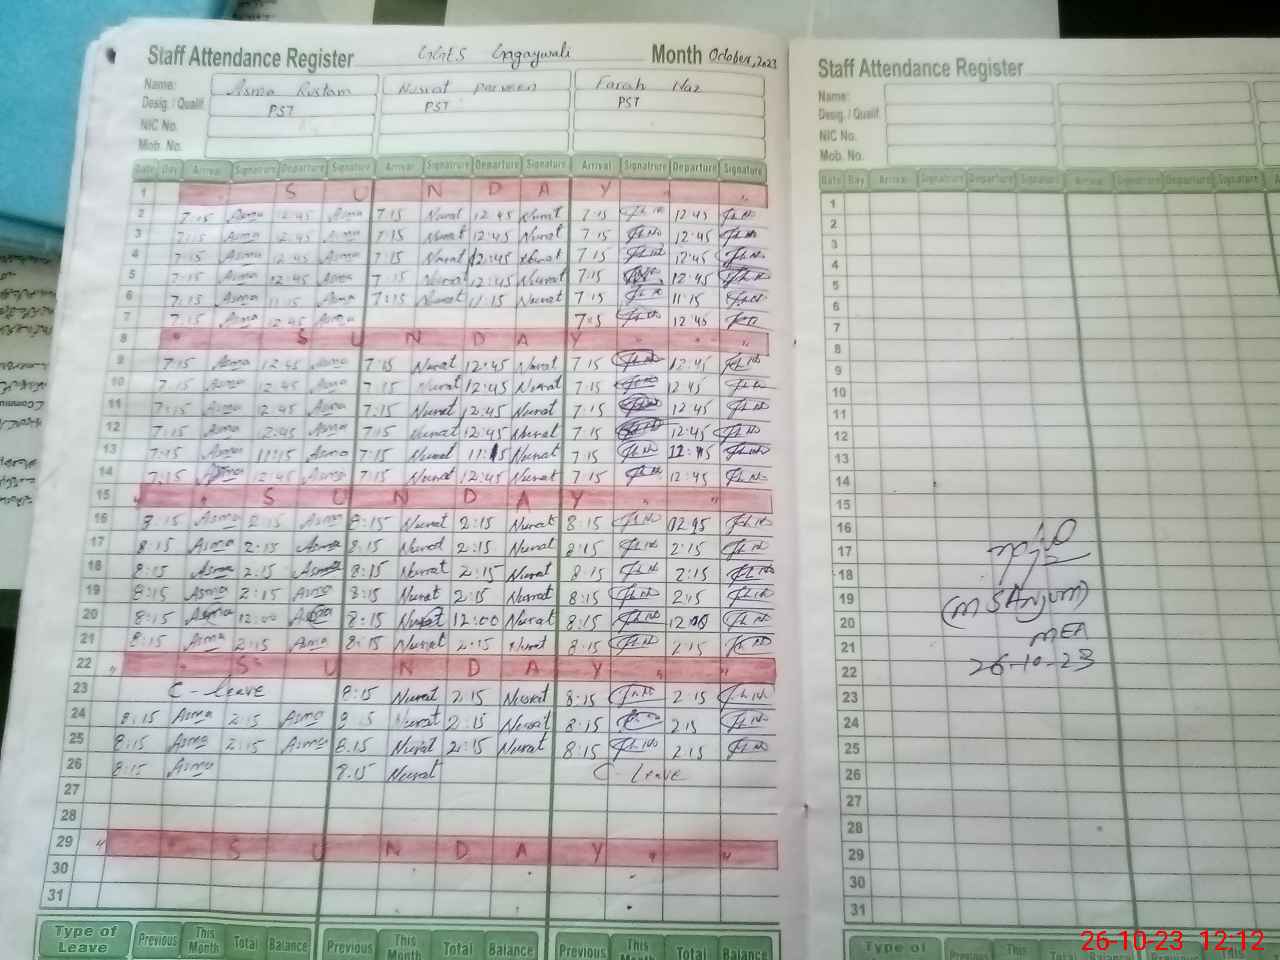 Staff Attendance Register GGES Month October, 2023
Name: Asma Rustam Nusrat Parveen Farah Naz
Desig. / Qualif. PST PST PST
NIC No.
Mob. No.
Date Day Arrival Signatrure Departure Signature Arrival Signatrure Departure Signature Arrival Signatrure Departure Signature
1 S U N D A Y "
2 7:15 Asma 12:45 Asma 7:15 Nusrat 12:45 Nusrat 7:15 12:45
3 7:15 Asma 12:45 Asma 7:15 Nusrat 12:45 Nusrat 7:15 12:45
4 7:15 Asma 12:45 Asma 7:15 Nusrat 12:45 Nusrat 7:15 12:45
5 7:15 Asma 12:45 Asma 7:15 Nusrat 12:45 Nusrat 7:15 12:45
6 7:15 Asma 11:15 Asma 7:15 Nusrat 11:15 Nusrat 7:15 11:15
7 7:15 Asma 12:45 Asma 7:15 12:45
8 " S U N D A Y " " "
9 7:15 Asma 12:45 Asma 7:15 Nusrat 12:45 Nusrat 7:15 12:45
10 7:15 Asma 12:45 Asma 7:15 Nusrat 12:45 Nusrat 7:15 12:45
11 7:15 Asma 12:45 Asma 7:15 Nusrat 12:45 Nusrat 7:15 12:45
12 7:15 Asma 12:45 Asma 7:15 Nusrat 12:45 Nusrat 7:15 12:45
13 7:15 Asma 11:15 Asma 7:15 Nusrat 11:15 Nusrat 7:15
14 7:15 Asma 12:45 Asma 7:15 Nusrat 12:45 Nusrat 7:15 12:45
15 " " S U N D A Y " "
16 8:15 Asma 2:15 Asma 8:15 Nusrat 2:15 Nusrat 8:15
17 8:15 Asma 2:15 Asma 8:15 Nusrat 2:15 Nusrat 8:15 2:15
18 8:15 Asma 2:15 Asma 8:15 Nusrat 2:15 Nusrat 8:15 2:15
19 8:15 Asma 2:15 Asma 8:15 Nusrat 2:15 Nusrat 8:15 2:15
20 8:15 Asma 12:00 Asma 8:15 Nusrat 12:00 Nusrat 8:15 12:00
21 8:15 Asma 2:15 Asma 8:15 Nusrat 2:15 Nusrat 8:15 2:15
22 " " S U N D A Y " "
23 C-leave 8:15 Nusrat 2:15 Nusrat 8:15 2:15
24 8:15 Asma 2:15 Asma 8:15 Nusrat 2:15 Nusrat 8:15 2:15
25 8:15 Asma 2:15 Asma 8:15 Nusrat 2:15 Nusrat 8:15 2:15
26 8:15 Asma 8:15 Nusrat C-leave
27
28
29 " " S U N D A Y " "
30
31
Type of Leave Previous This Month Total Balance Previous This Month Total Balance Previous This Month Total Balance
Staff Attendance Register
Name:
Desig. / Qualif.
NIC No.
Mob. No.
Date Day Arrival Signatrure Departure Signature Arrival Signatrure Departure Signature
1
2
3
4
5
6
7
8
9
10
11
12
13
14
15
16
17
18
19
20
21
22
23
24
25
26
27
28
29
30
31
(M S Anjum)
MEA
26-10-23
Type of Previous This Total Balance Previous This
26-10-23 12:12